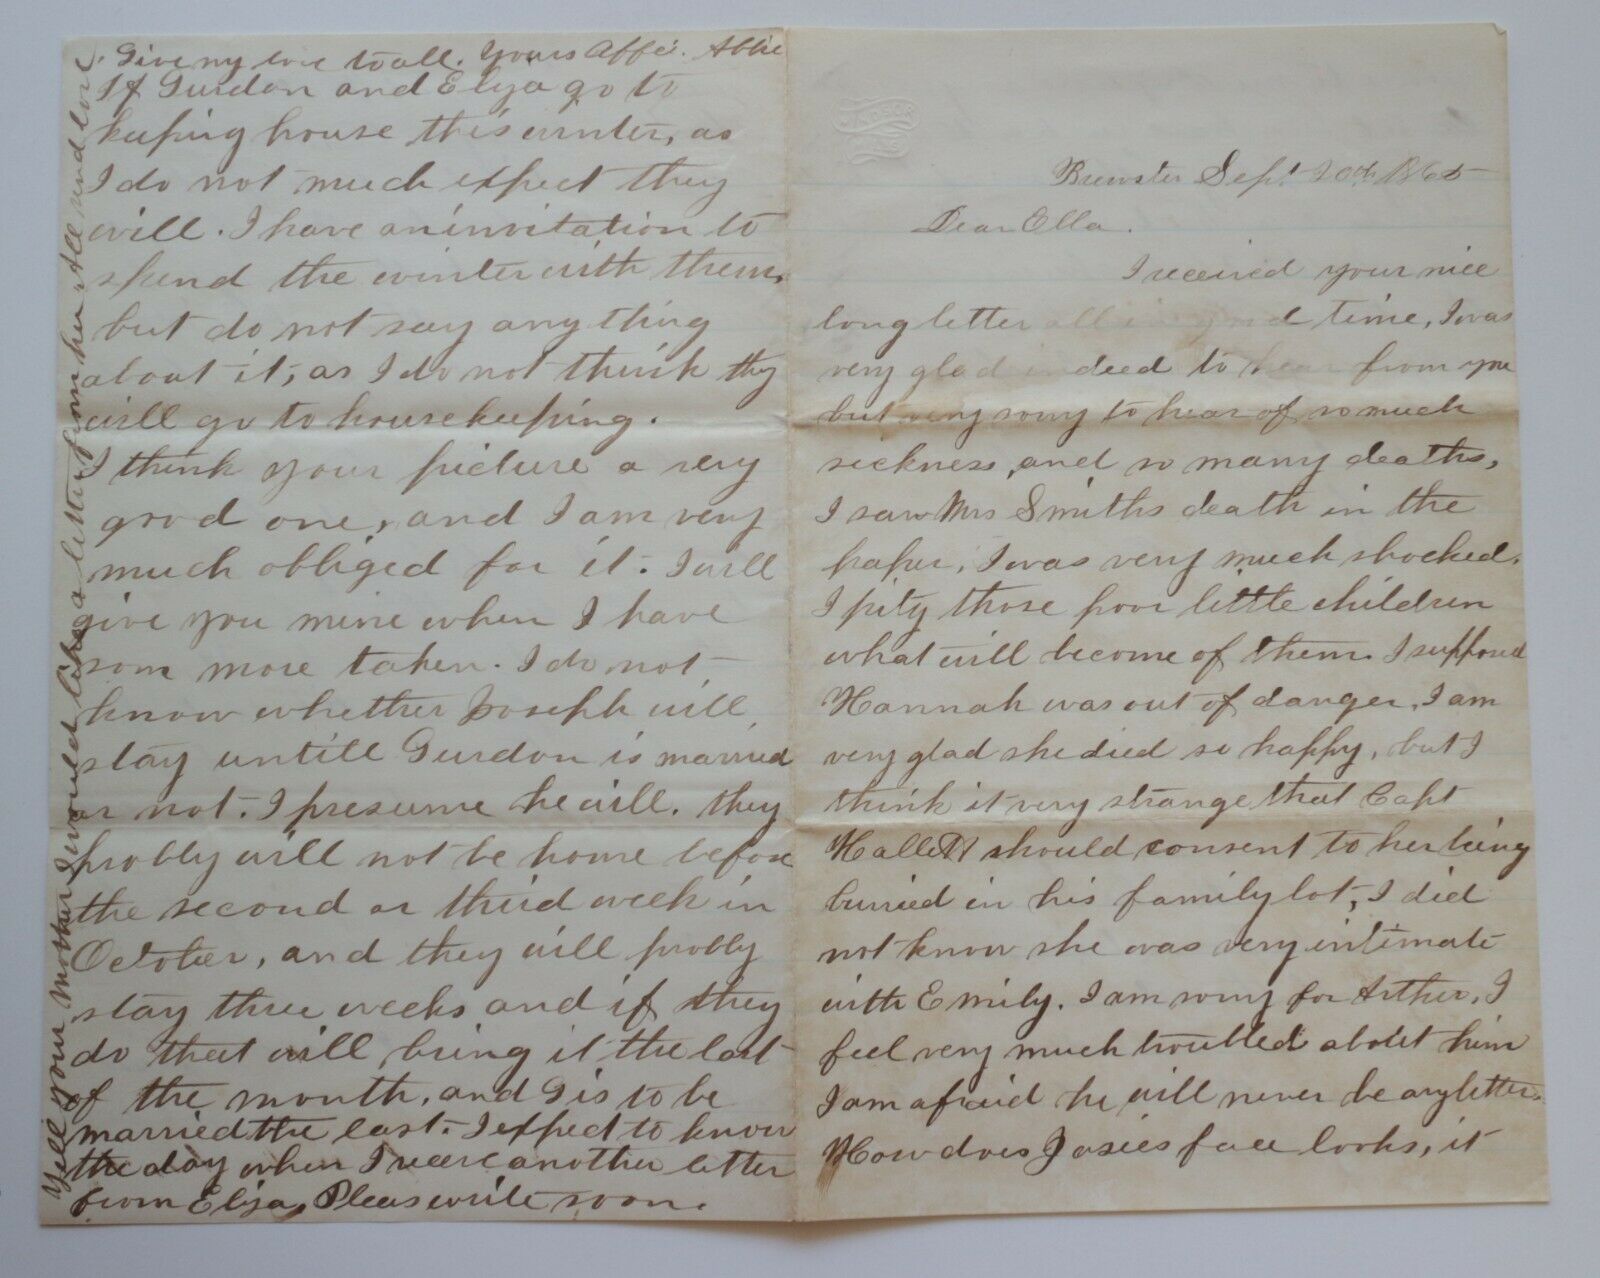 Brewster Sept 20th 1865
Dear Ella.
I received your nice
long letter all in good time, I was
very glad indeed to hear from you
but very sorry to hear of so much
sickness, and so many deaths,
I saw Mrs Smiths death in the
paper, I was very much shocked.
I pity those poor little children
what will become of them. I supposed
Hannah was out of danger, I am
very glad she died so happy, but I
think it very strange that Capt
Hallett should consent to her being
buried in his family lot, I did
not know she was very intimate
with Emily. I am sorry for Arther, I
feel very much troubled about him
I am afraid he will never be any better.
How does Josies face looks, it
If Gurdon and Eliza go to
keeping house this winter, as
I do not much expect they
will. I have an invitation to
spend the winter with them,
but do not say any thing
about it, as I do not think they
will go to housekeeping.
I think your picture a very
good one, and I am very
much obliged for it. I will
give you mine when I have
som more taken. I do not
know whether Joseph will
stay untill Gurdon is married
or not. I presume he will. they
probbly will not be home before
the second or third week in
October, and they will probbly
stay three weeks and if they
do that will bring it the last
of the month, and G is to be
married the last. I expect to know
the day when I receve another letter
from Eliza, Pleas write soon.
Give my love to all. Yours Affe. Abbie
Tell your mother I would like a letter from her. All send love